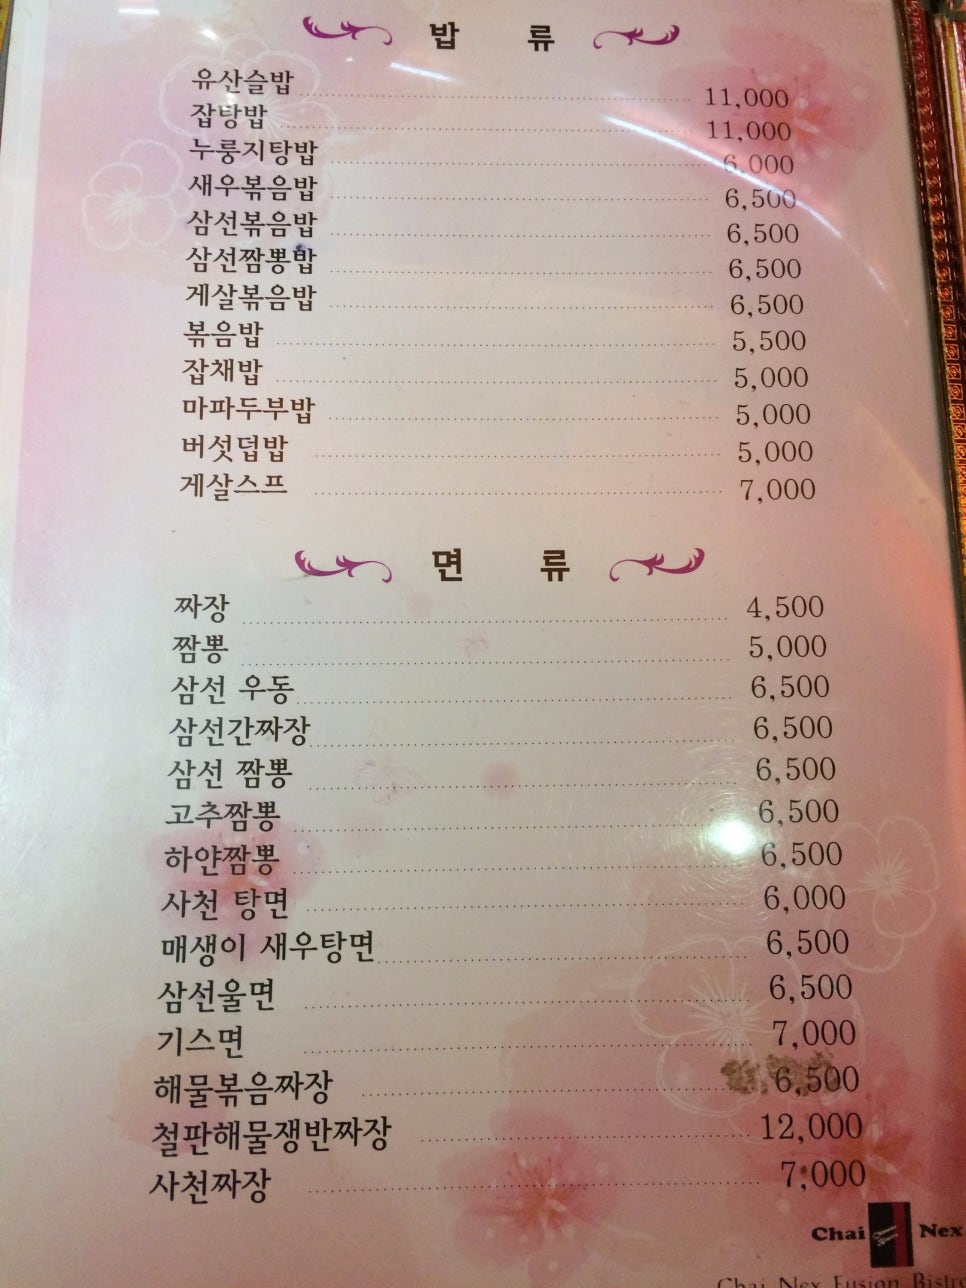 밥 류
유산슬밥 11,000
잡탕밥 11,000
누룽지탕밥 6,000
새우볶음밥 6,500
삼선볶음밥 6,500
삼선짬뽕밥 6,500
게살볶음밥 6,500
볶음밥 5,500
잡채밥 5,000
마파두부밥 5,000
버섯덥밥 5,000
게살스프 7,000
면 류
짜장 4,500
짬뽕 5,000
삼선 우동 6,500
삼선간짜장 6,500
삼선 짬뽕 6,500
고추짬뽕 6,500
하얀짬뽕 6,500
사천 탕면 6,000
매생이 새우탕면 6,500
삼선울면 6,500
기스면 7,000
해물볶음짜장 6,500
철판해물쟁반짜장 12,000
사천짜장 7,000
Chai Nex
Chai Nex Fusion Bistro